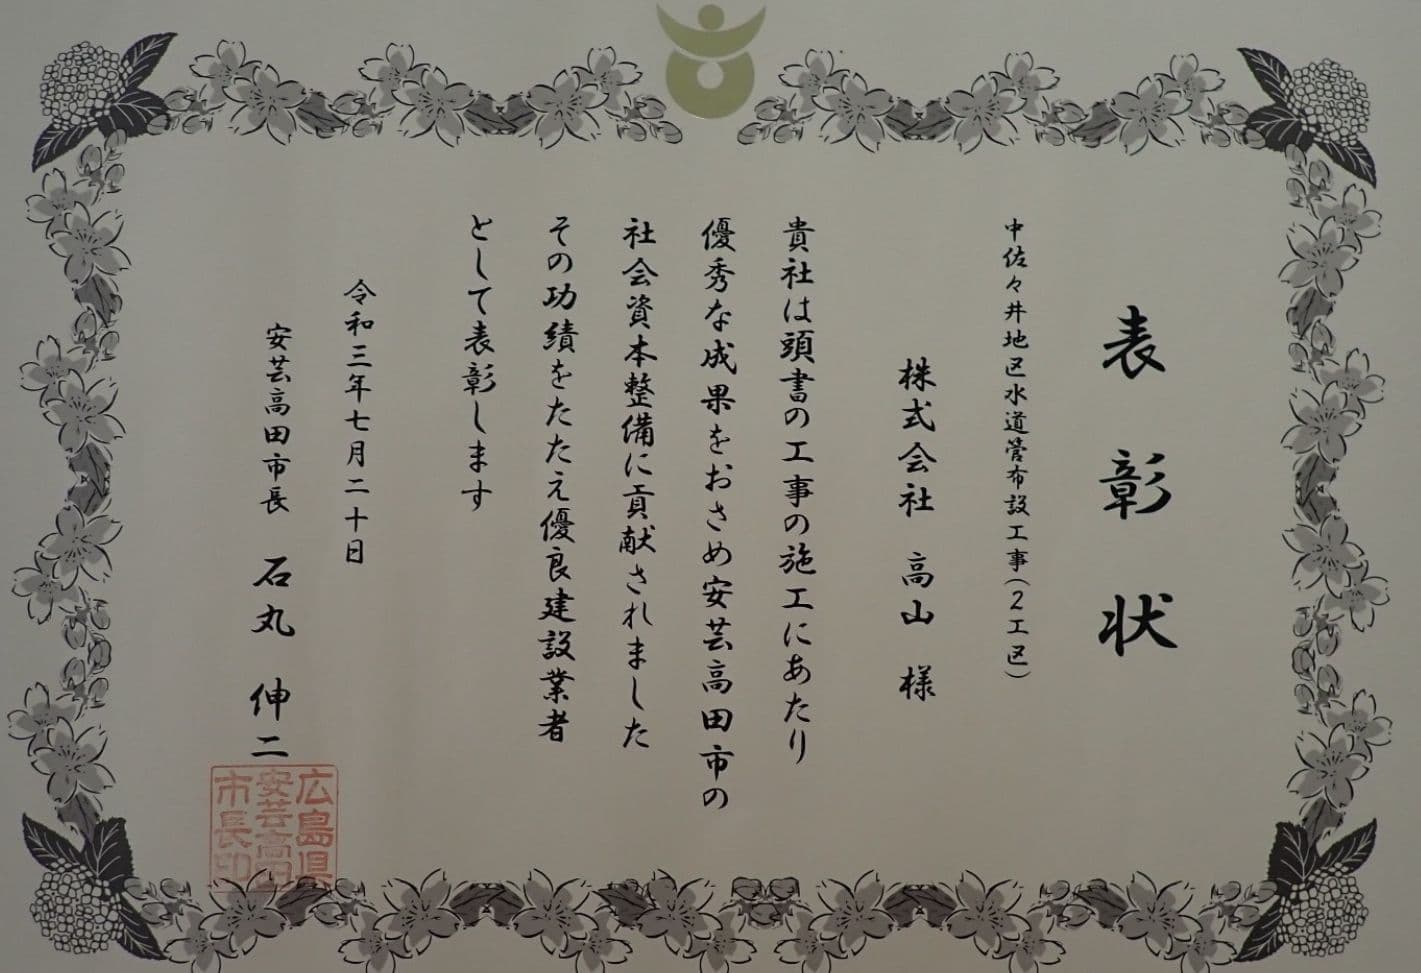 表彰状
中佐々井地区水道管布設工事(2工区)
株式会社 高山 様
貴社は頭書の工事の施工にあたり
優秀な成果をおさめ安芸高田市の
社会資本整備に貢献されました
その功績をたたえ優良建設業者
として表彰します
令和三年七月二十日
安芸高田市長 石丸 伸二
広島県
安芸高田
市長印